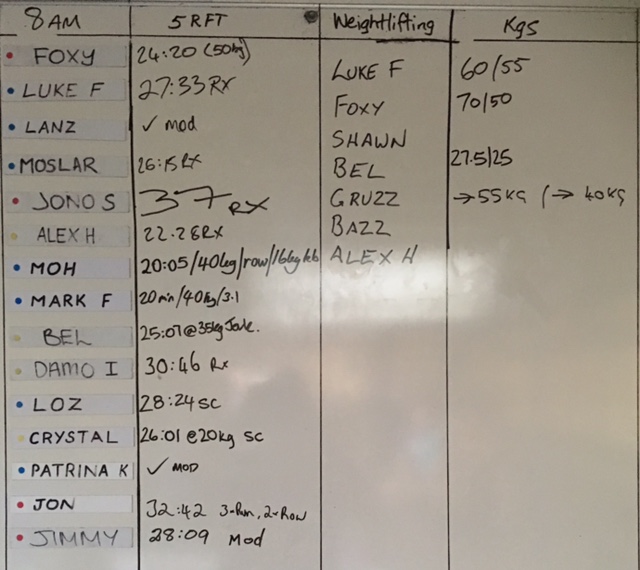 8AM 5 RFT Weightlifting Kgs
FOXY 24:20 (50kg)
LUKE F 60/55
LUKE F 27:33 RX
FOXY 70/50
LANZ ✓ mod
SHAWN
MOSLAR 26:15 RX
BEL 27.5/25
JONO S 37 RX
GRUZZ →55KG /→ 40KG
ALEX H 22.28RX
BAZZ
MOH 20:05/40kg/row/16kg kb
ALEX H
MARK F 20min/40kg/3.1
BEL 25:07@35kg
DAMO I 30:46 Rx
LOZ 28:24 SC
CRYSTAL 26:01 @20kg SC
PATRINA K ✓ MOD
JON 32:42 3-Run, 2-Row
JIMMY 28:09 Mod